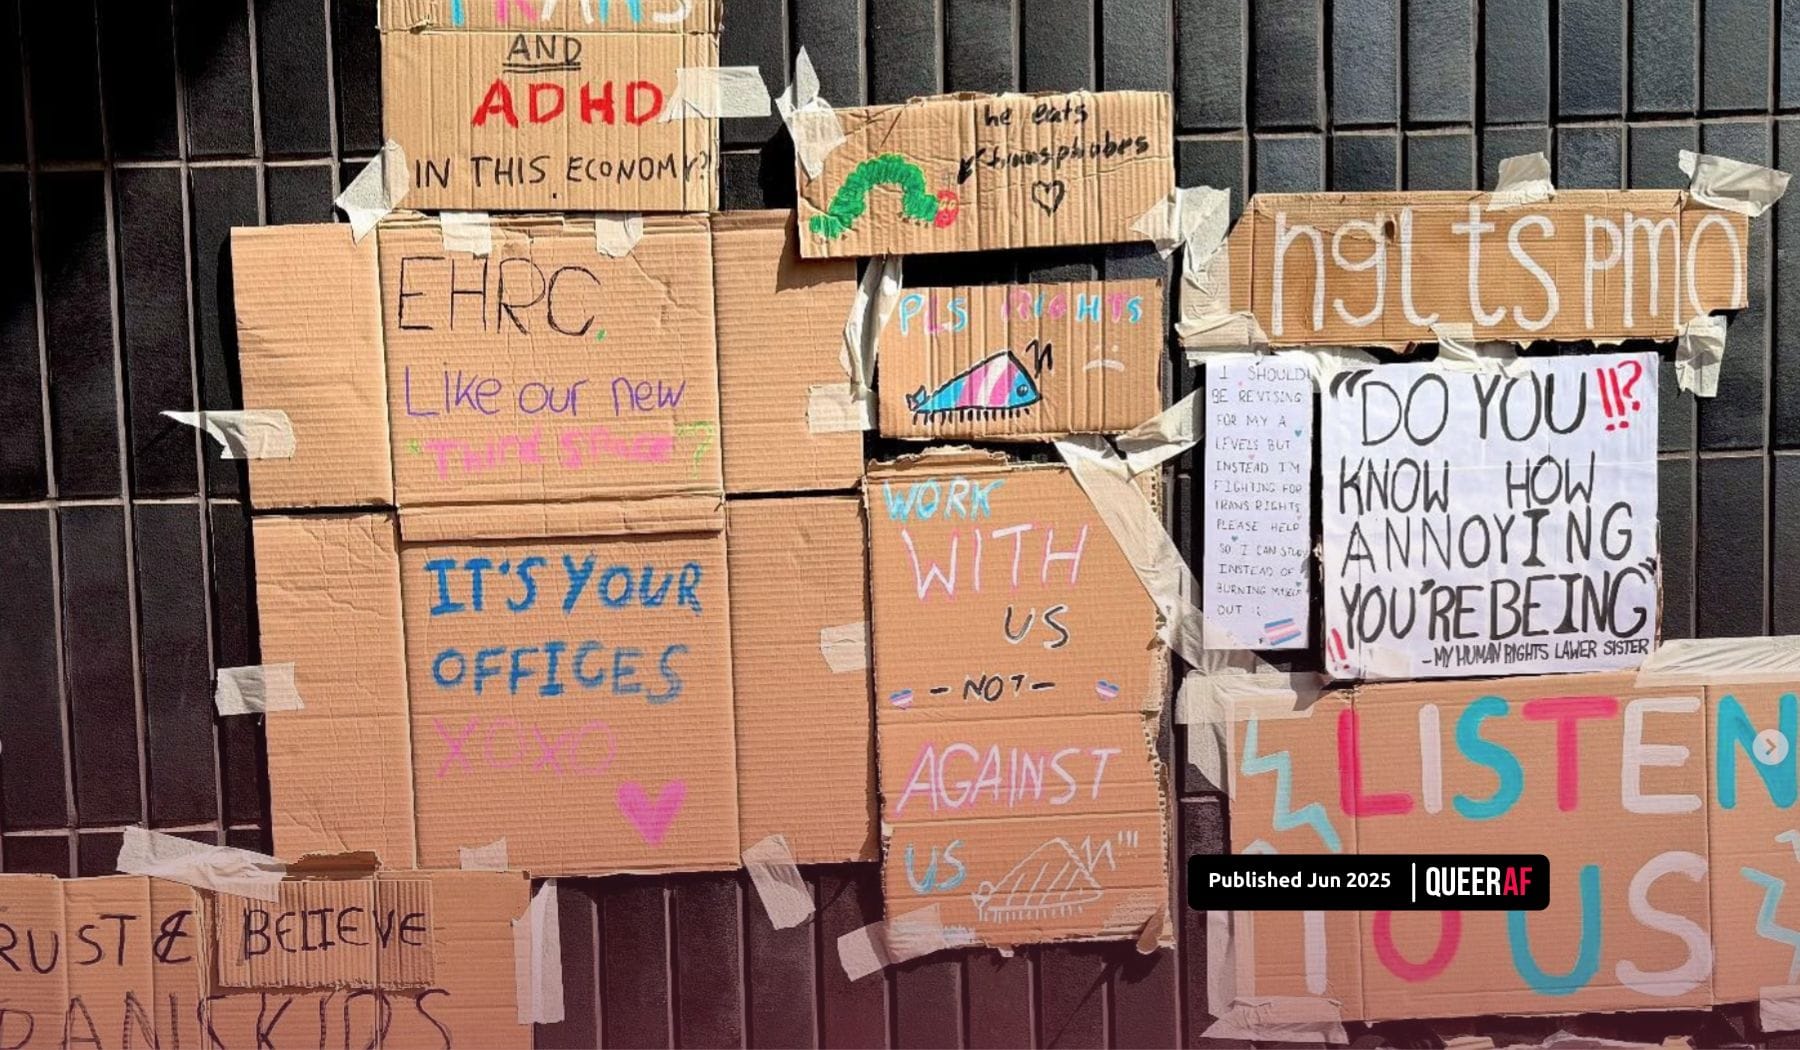 TRANS
AND
ADHD
IN THIS ECONOMY?!
he eats
transphobes
EHRC,
Like our new
"Third space"?
IT'S YOUR
OFFICES
XOXO
PLS RIGHTS
WORK
WITH
US
- NOT -
AGAINST
US
ngl ts pmo
I SHOULD
BE REVISING
FOR MY A
LEVELS BUT
INSTEAD I'M
FIGHTING FOR
TRANS RIGHTS
PLEASE HELP
SO I CAN STUDY
INSTEAD OF
BURNING MYSELF
OUT :(
"DO YOU!!?
KNOW HOW
ANNOYING
YOU'RE BEING"
!!
-MY HUMAN RIGHTS LAWER SISTER
LISTEN
TO US
RUST & BELIEVE
RANS KIDS
Published Jun 2025 | QUEERAF